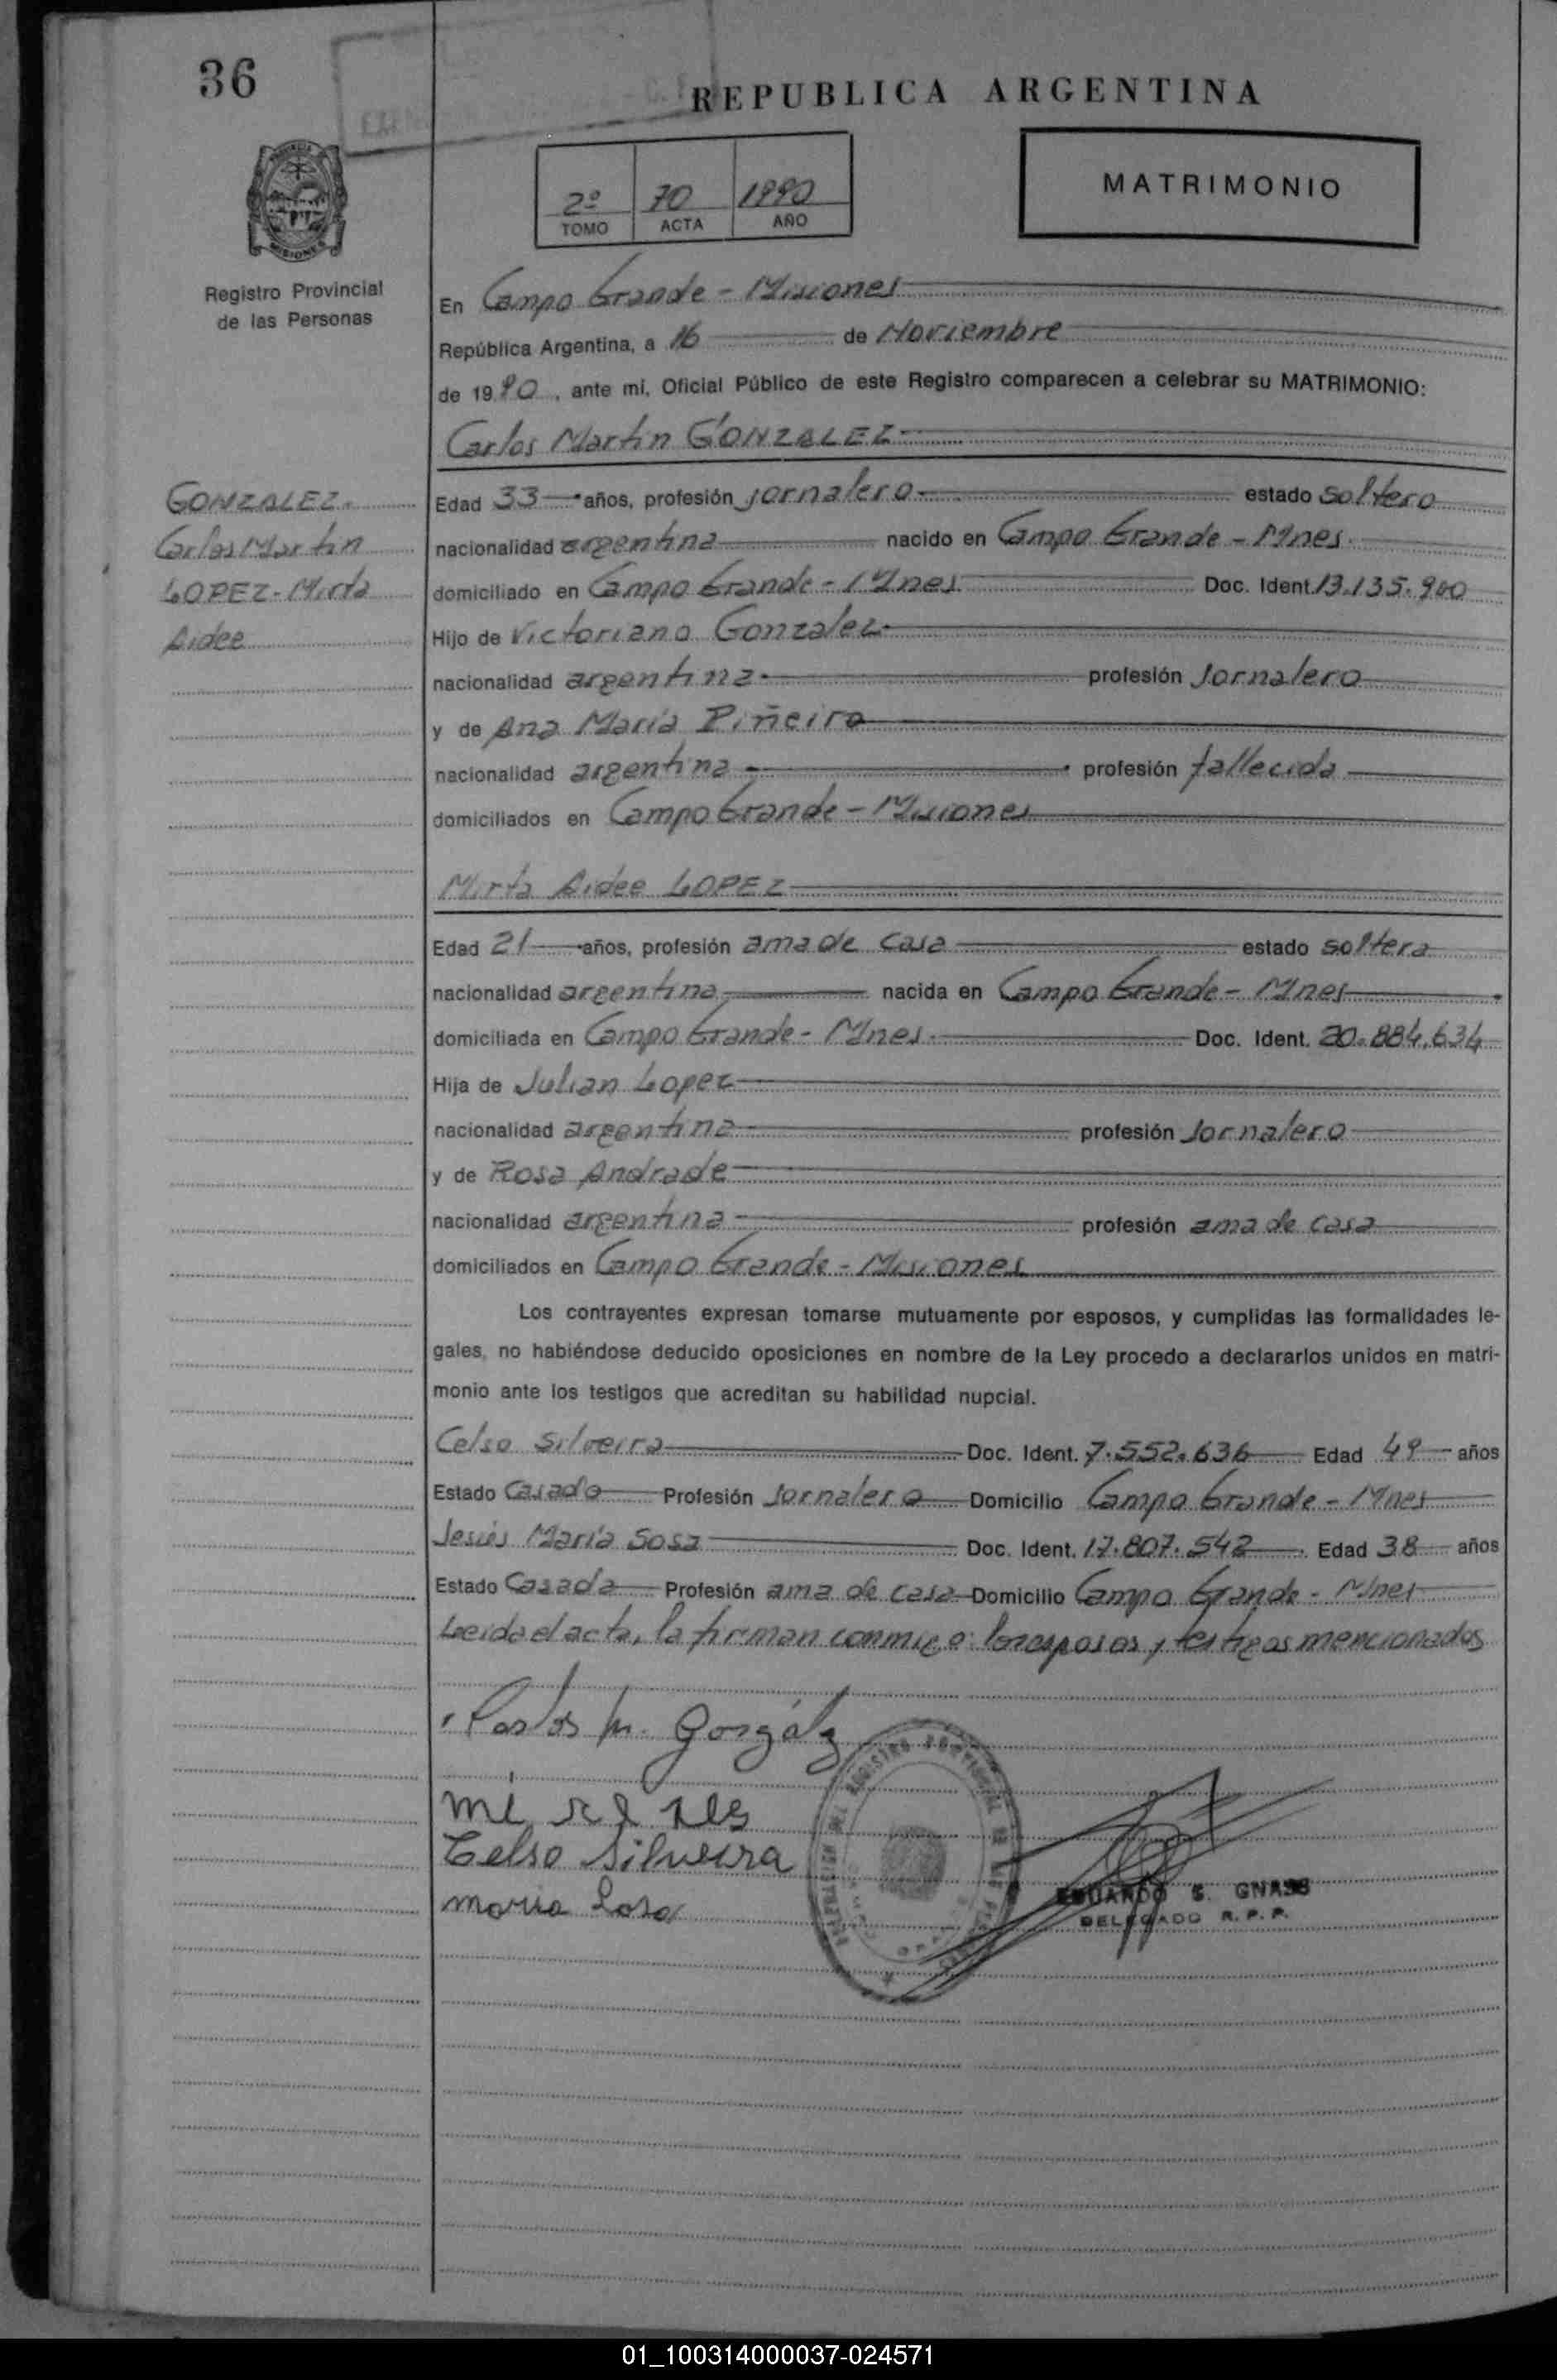 36
REPUBLICA ARGENTINA
MATRIMONIO
2º 70 1990
TOMO ACTA AÑO
MISIONES
Registro Provincial
de las Personas
En Campo Grande - Misiones
República Argentina, a 16 de Noviembre
de 1990, ante mi, Oficial Público de este Registro comparecen a celebrar su MATRIMONIO:
Carlos Martin GONZALEZ
GONZALEZ.
Carlos Martin
LOPEZ - Mirta
Aidee
Edad 33 años, profesión jornalero estado soltero
nacionalidad argentina nacido en Campo Grande - Mnes.
domiciliado en Campo Grande - Mnes. Doc. Ident. 13.135.900
Hijo de Victoriano Gonzalez
nacionalidad argentina profesión Jornalero
y de Ana María Piñeiro
nacionalidad argentina profesión fallecida
domiciliados en Campo Grande - Misiones
Mirta Aidee LOPEZ
Edad 21 años, profesión ama de casa estado soltera
nacionalidad argentina nacida en Campo Grande - Mnes
domiciliada en Campo Grande - Mnes. Doc. Ident. 20.884.634
Hija de Julian Lopez
nacionalidad argentina profesión Jornalero
y de Rosa Andrade
nacionalidad argentina profesión ama de casa
domiciliados en Campo Grande - Misiones
Los contrayentes expresan tomarse mutuamente por esposos, y cumplidas las formalidades le-
gales, no habiéndose deducido oposiciones en nombre de la Ley procedo a declararlos unidos en matri-
monio ante los testigos que acreditan su habilidad nupcial.
Celso Silveira Doc. Ident. 7.552.636 Edad 49 años
Estado Casado Profesión Jornalero Domicilio Campo Grande - Mnes
Jesús María Sosa Doc. Ident. 17.807.542 Edad 38 años
Estado Casada Profesión ama de casa Domicilio Campo Grande - Mnes
Leida el acta, la firman conmigo los esposos y testigos mencionados
Carlos M. Gonzálz
Celso Silveira
maria Sosa
EDUARDO S. GNASS
DELEGADO R.P.P.
01_100314000037-024571